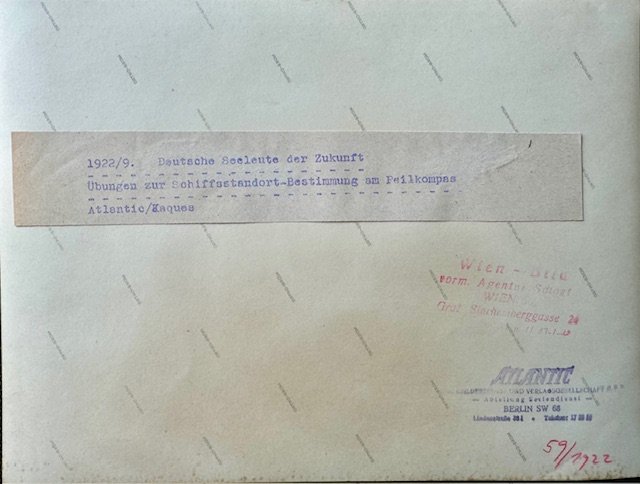 1922/9. Deutsche Seeleute der Zukunft
Übungen zur Schiffsstandort-Bestimmung am Peilkompas
Atlantic/Kaques
Wien - Bild
vorm. Agentur
WIEN
Graf Starhemberggasse 24
ATLANTIC
UND VERLAGSGESELLSCHAFT
— Abteilung Seriendienst —
BERLIN SW 68
Lindenstraße • Telefon: 17
59/1922